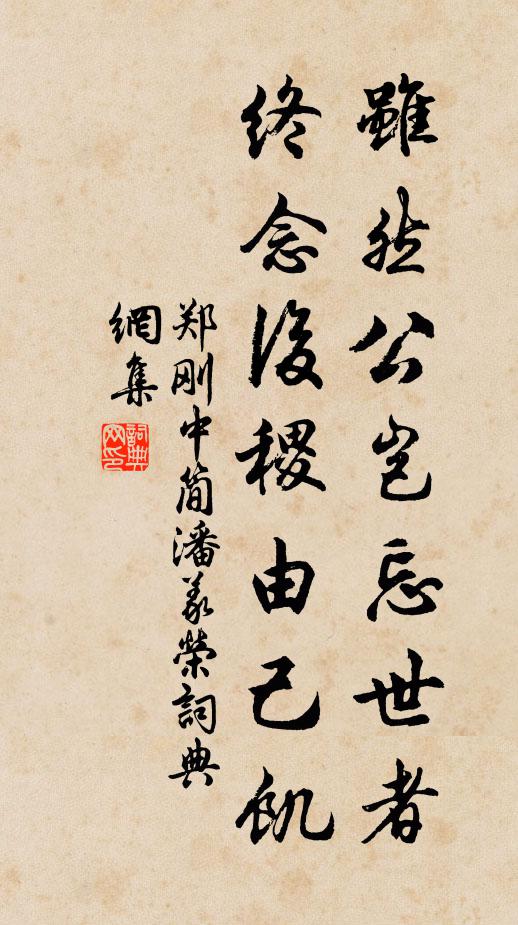 雖然公岂忘世者
终念後稷由己飢
郑刚中简潘义榮詞典
網集
詞典网印